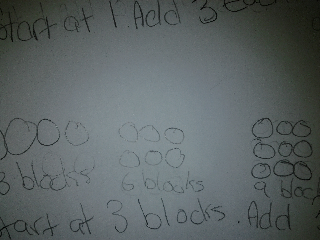 Start at 1. Add 3 each
3 blocks 6 blocks 9 block
Start at 3 blocks. Add